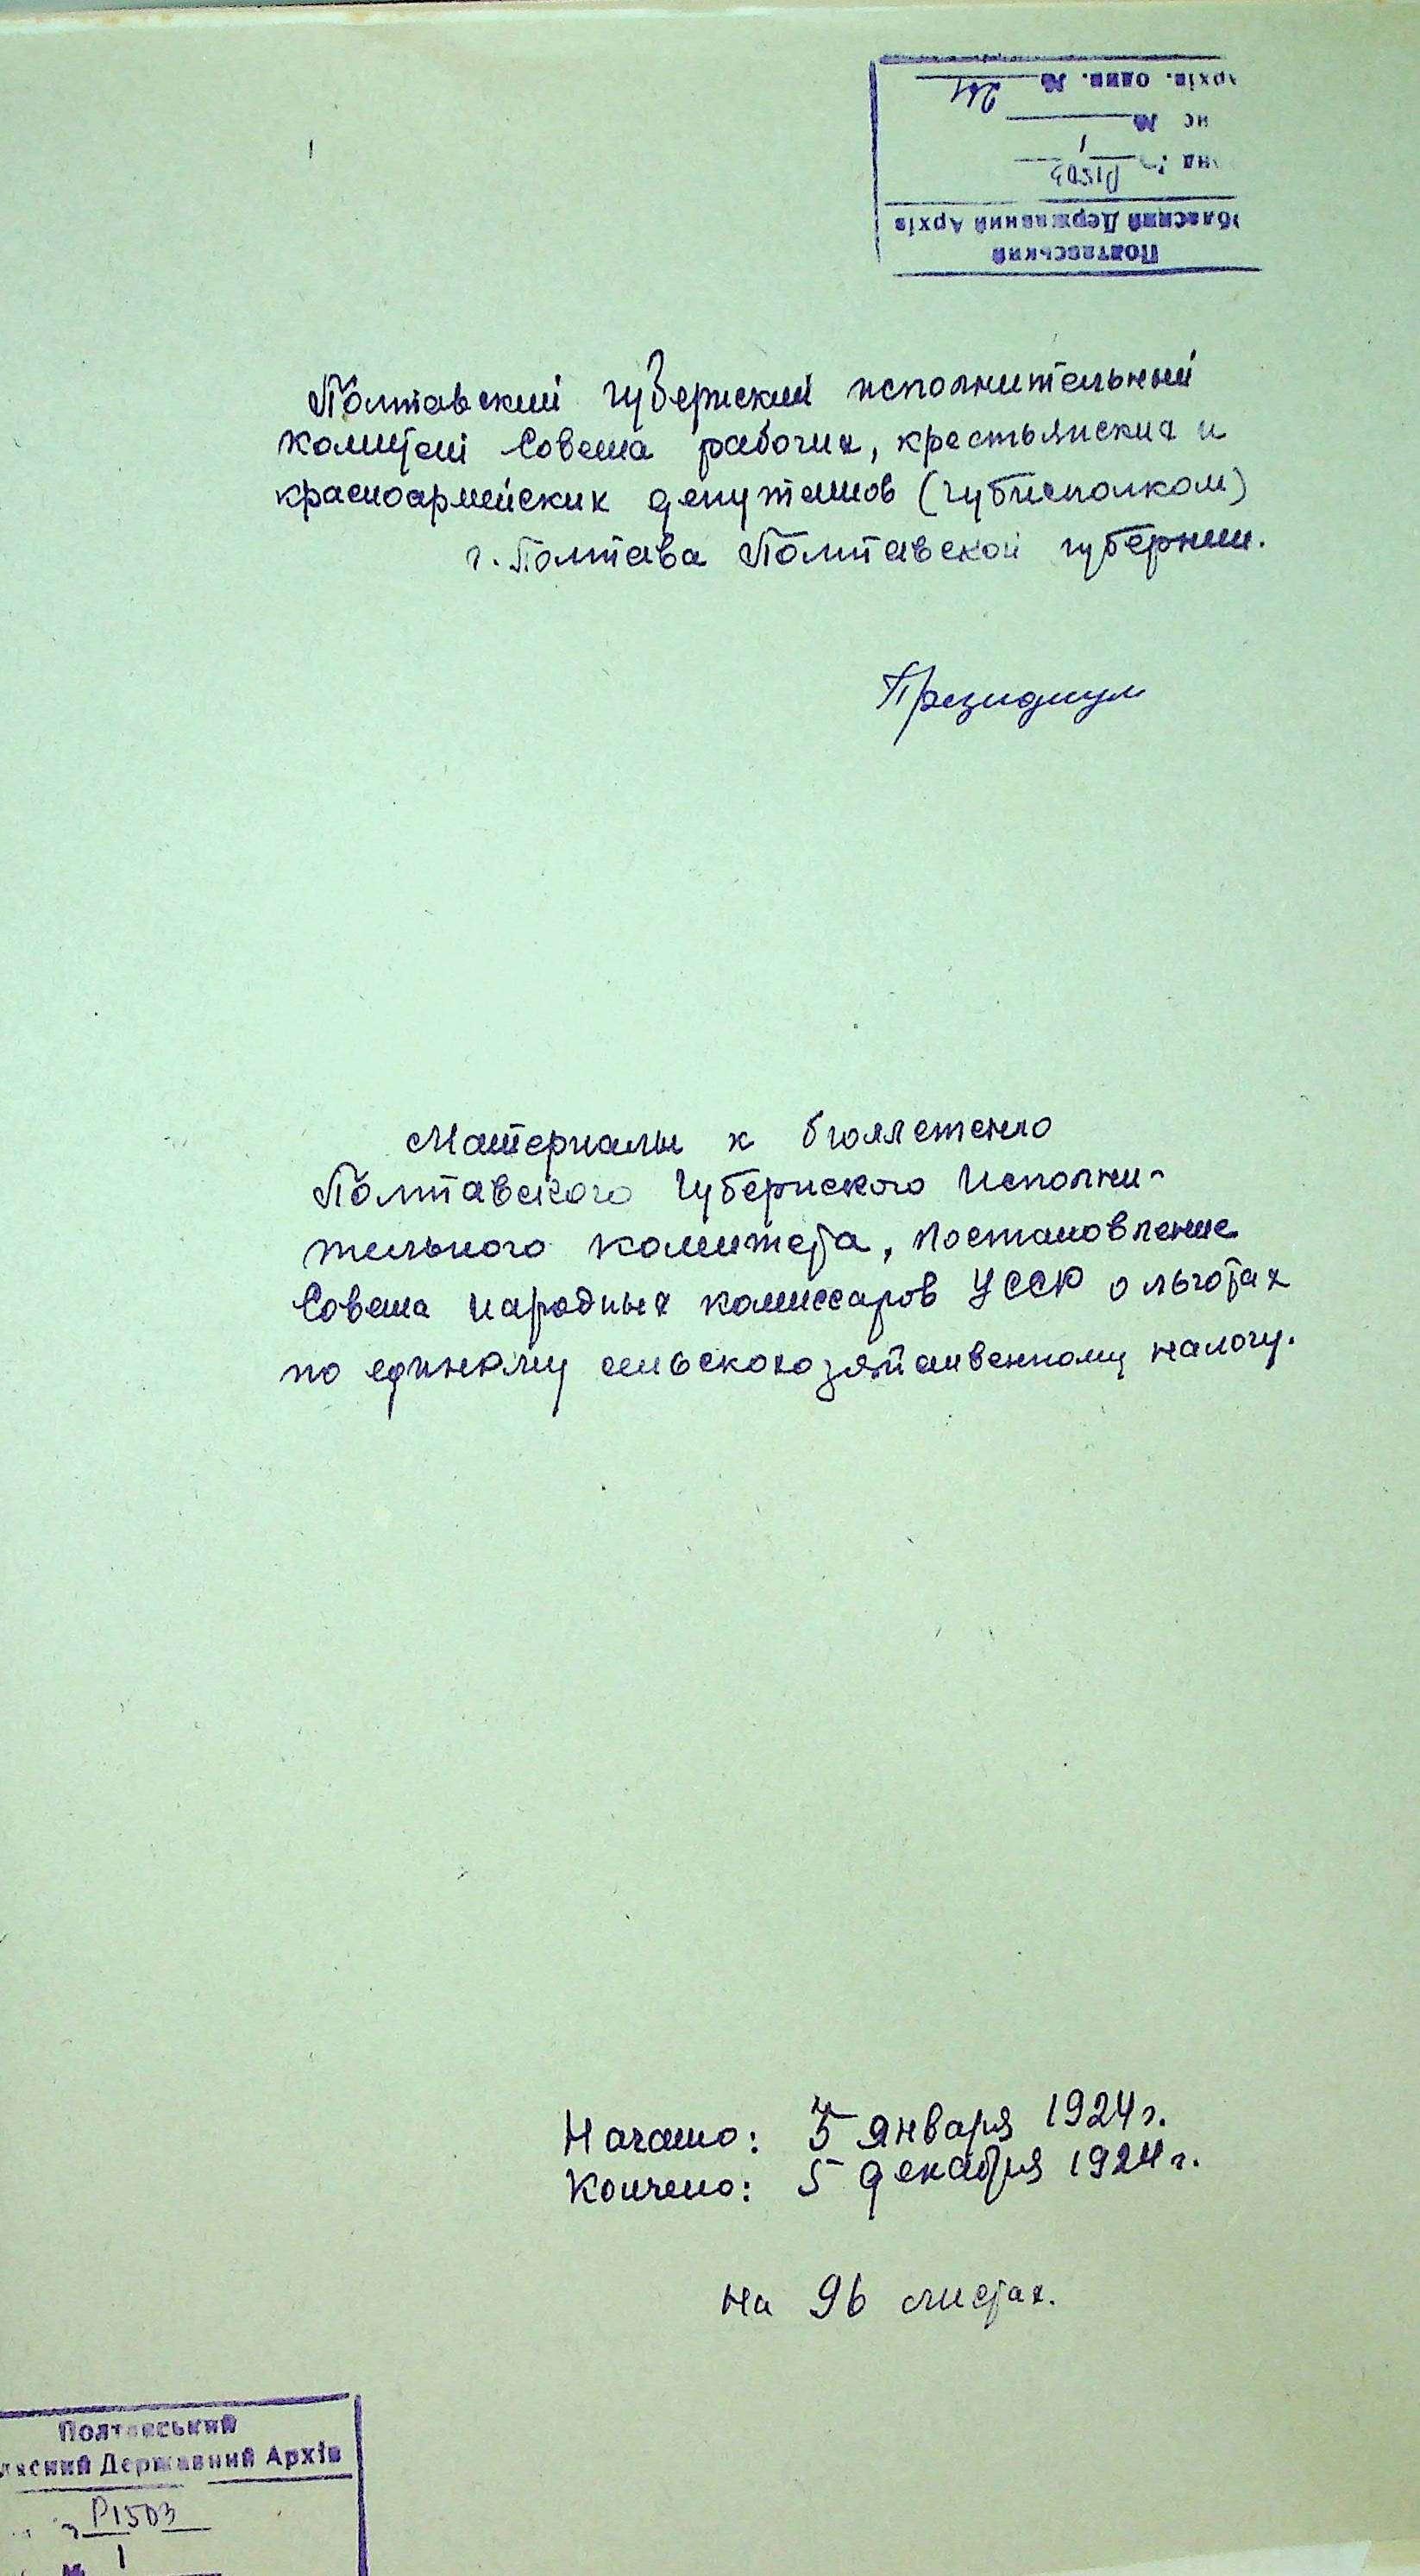 Полтавський
бласний Державний Архів
нд Р1503
ис № 1
Архів. один. №
Полтавский губернский исполнительный
комитет Совета рабочих, крестьянских и
красноармейских депутатов (губисполком)
г. Полтава Полтавской губернии.
Президиум
Материалы к бюллетеню
Полтавского Губернского Исполни-
тельного комитета, постановление
Совета народных комиссаров УССР о льготах
по единому сельскохозяйственному налогу.
Начато: января 1924 г.
Кончено: 5 декабря 1924 г.
На 96 листах.
Полтавський
ласний Державний Архів
Р1503
№ 1